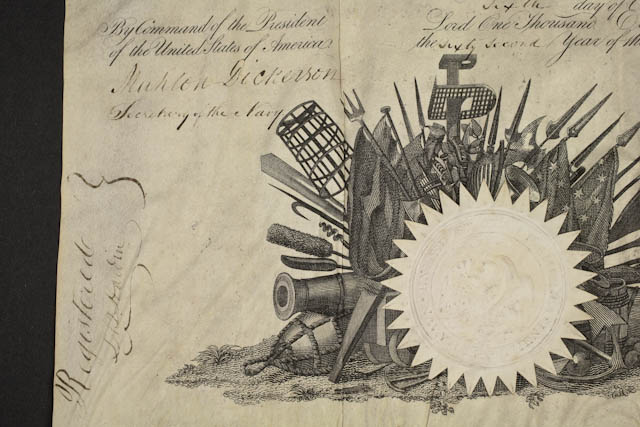 By Command of the President
of the United States of America
Mahlon Dickerson
Secretary of the Navy
Sixth day of
Lord One Thousand
the Sixty Second Year of the
Registered